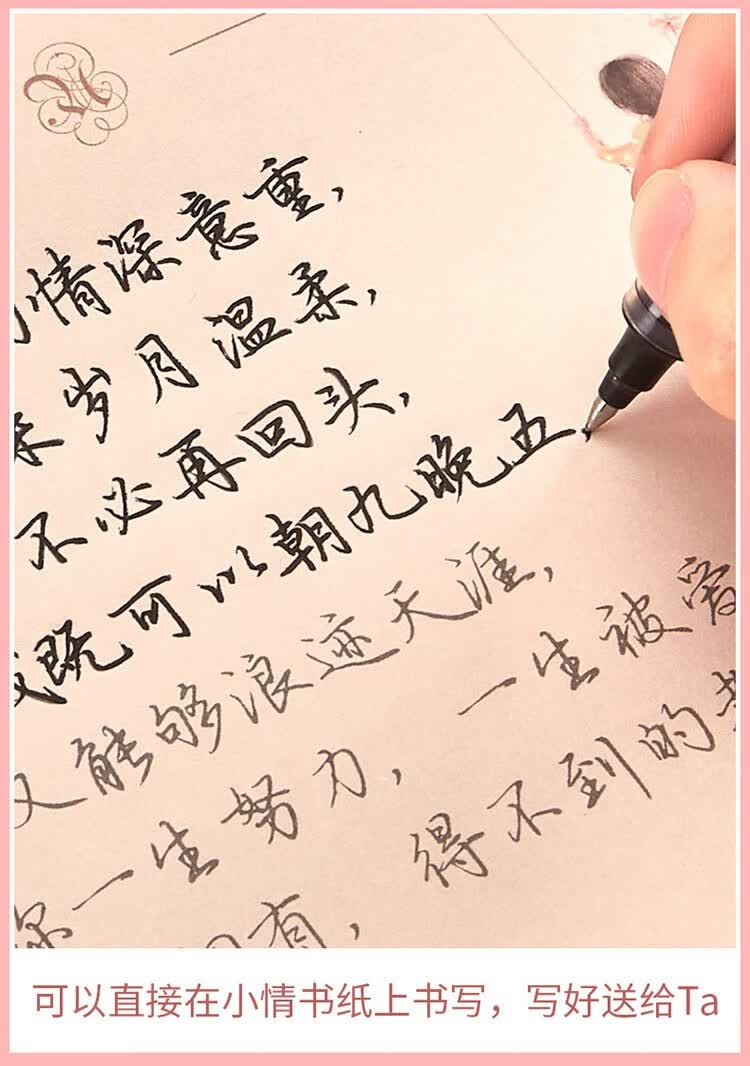 情深意重，
岁月温柔，
不必再回头，
既可以朝九晚五
又能够浪迹天涯，
一生被爱
你一生努力，
得不到的
有，
可以直接在小情书纸上书写，写好送给Ta